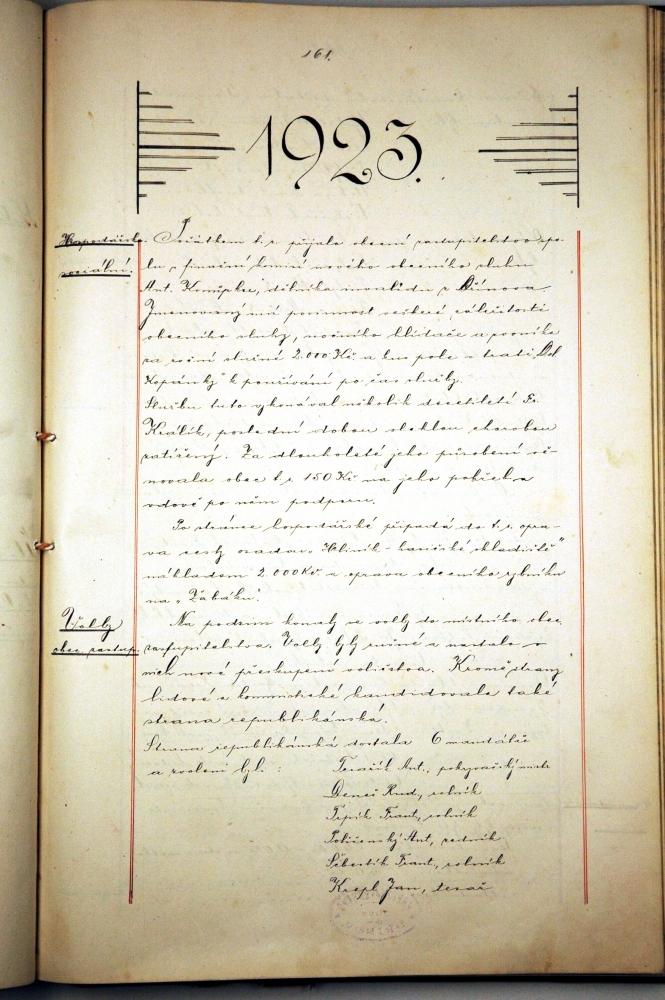 161.
1923.
Hospodářsko
sociální.
Počátkem t. r. přijalo obecní zastupitelstvo spo-
lu s finanční komisí nového obecního sluhu
Ant. , dělníka
Jmenovaný má povinnost veškeré záležitosti
obecního sluhy, nočního hlídače a ponocného
za roční služné 2.000 Kč. a kus pole v trati „Od
Kopánky" k používání po čas služby.
Službu tuto vykonával několik desetiletí Fr.
Králík, poslední dobou oteklou chorobou
zatížený. Za dlouholeté jeho působení vě-
novala obec t. r. 150 Kč na jeho pohřeb a
vdově po něm podporu.
Po stránce hospodářské připadá do t. r. opra-
va cesty osadou „Hliník - skladiště"
nákladem 2.000 Kč. a oprava obecního rybníka
na „Žabáku".
Volby
obec. zastup.
Na podzim konaly se volby do místního obec.
zastupitelstva. Volby byly rušné a nastalo v
nich nové přeskupení voličstva. Kromě strany
lidové a komunistické kandidovala také
strana republikánská.
Strana republikánská dostala 6 mandátů
a zvoleni byli :
Ant., pokrývačský mistr
Rud., rolník
Frant., rolník
Ant., rolník
Šebestík Frant., rolník
Krepl Jan, tesař